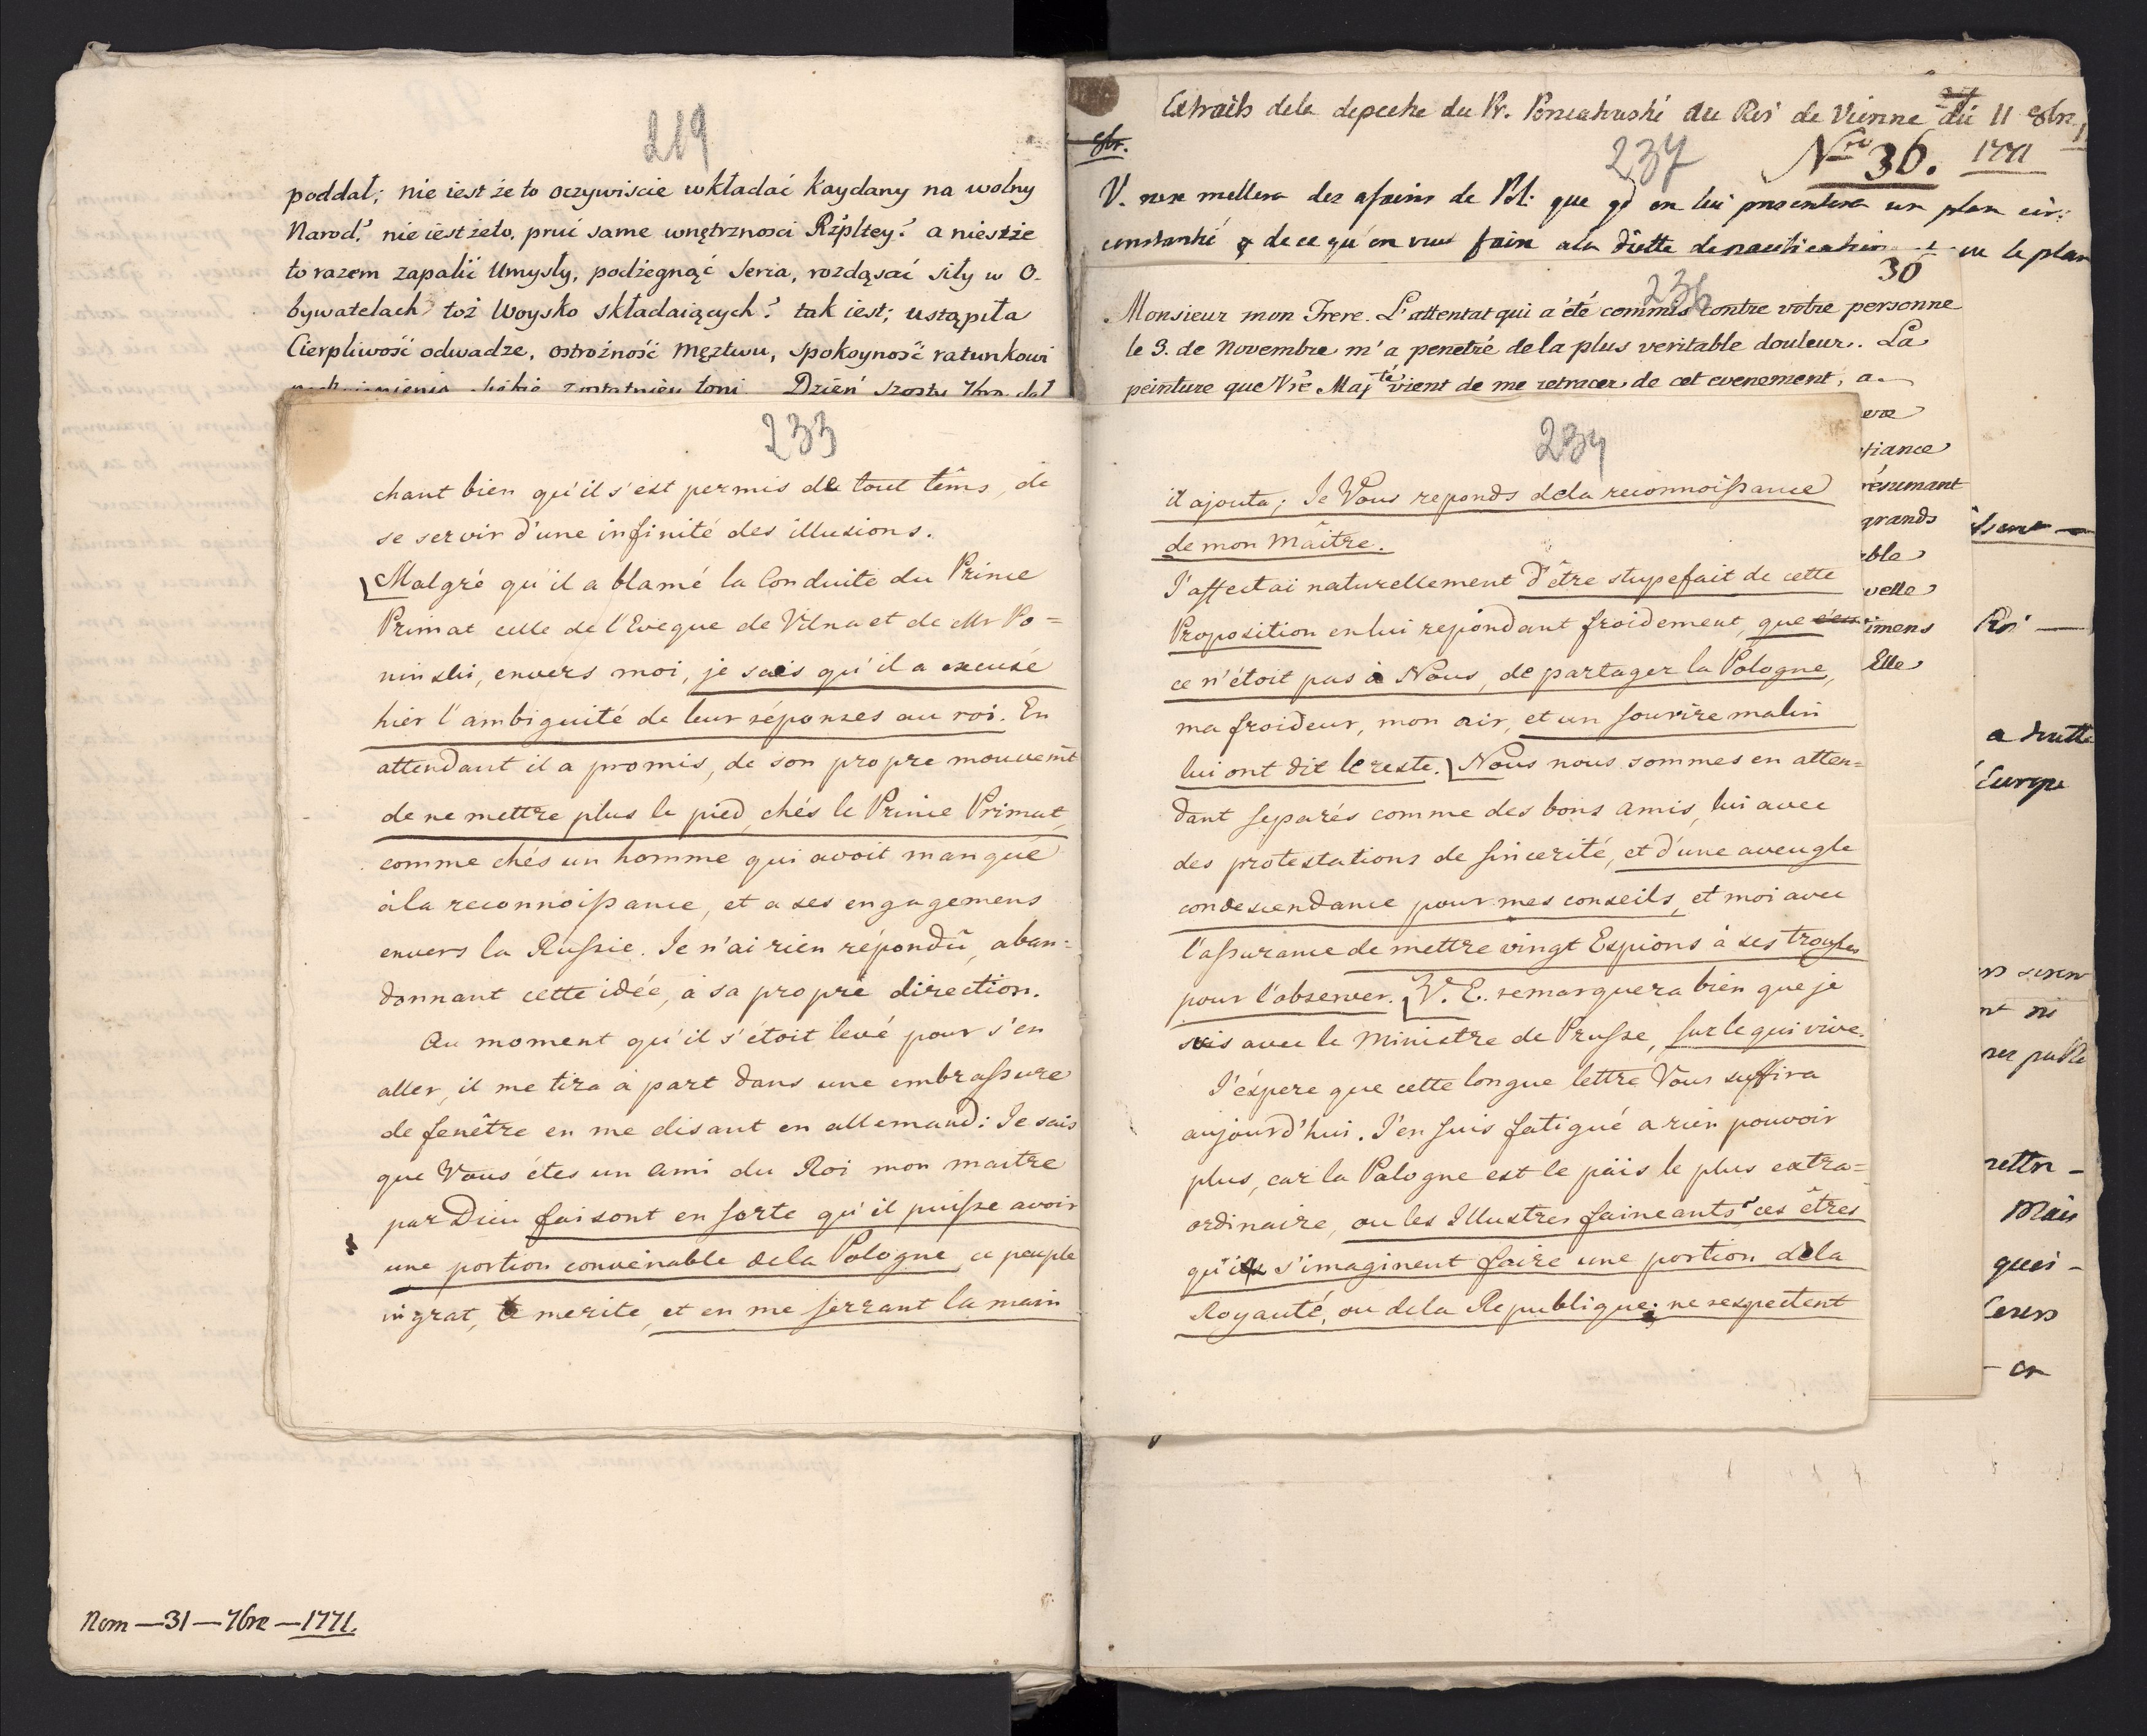 219
poddał; nie iest że to oczywiscie wkładać kaydany na wolny
Narod? nie iest żeto, pruć same wnętrznosci Rzpltey? a nieszże
to razem zapalić Umysły, podżegnąć serca, rozdąsać siły w O-
bywatelach toż Woysko składaiących? tak iest; ustąpiła
Cierpliwość odwadze, ostrożność męztwu, spokoyność ratunkowi
toni Dzień szosty 7bra dał
Nom — 31 — 7bre — 1771.
233
chant bien qu'il s'est permis de tout têms, de
se servir d'une infinité des illusions.
Malgré qu'il a blamé la Conduite du Prince
Primat celle de l'Eveque de Vilna et de Mr Po=
ninski, envers moi, je sais qu'il a excusé
hier l'ambiguité de leur réponses au roi. En
attendant il a promis, de son propre mouvem̃t
de ne mettre plus le pied, chés le Prince Primat,
comme chés un homme qui avoit manqué
à la reconnoissance, et a ses engagemens
envers la Russie. Je n'ai rien répondû, aban=
donnant cette idée, à sa propre direction.
Au moment qu'il s'étoit levé pour s'en
aller, il me tira à part dans une embrassure
de fenêtre en me disant en allemand: Je sais
que Vous étes un ami du Roi mon maitre
par Dieu faisont en sorte qu'il puisse avoir
une portion convenable dela Pologne, ce peuple
ingrat, le merite, et en me serrant la main
Extraits dela depeche du Pr. Poniatowski au Roi de Vienne du 11 8bre
8br.
237
Nro 36. 1771
V. n'en mellera des afaires de Pol: que qd on lui presentera un plan cir:
constantié & de ce qu'on veut faire a la diette de pacification ou le plan
30
236
Monsieur mon Frere. L'attentat qui a été commis contre votre personne
le 3. de Novembre m'a penetré de la plus veritable douleur. La
peinture que Vre Majté vient de me retracer de cet evenement, a
234
il ajouta; Je Vous reponds dela reconnoissance
de mon Maître.
J'affectai naturellement d'être stupefait de cette
Proposition en lui repondant froidement, que
ce n'étoit pas à Nous, de partager la Pologne,
ma froideur, mon air, et un sourire malin
lui ont dit le reste. Nous nous sommes en atten=
dant separés comme des bons amis, lui avec
des protestations de sincerité, et d'une aveugle
condescendance pour mes conseils, et moi avec
l'assurance de mettre vingt Espions à ses trousses
pour l'observer. V. E. remarquera bien que je
suis avec le Ministre de Prusse, sur le qui vive.
J'éspere que cette longue lettre Vous suffira
aujourd'hui. J'en suis fatigué a rien pouvoir
plus, car la Pologne est le païs le plus extra=
ordinaire, ou les Illustres faineants ces êtres
qui s'imaginent faire une portion dela
Royauté, ou dela Republique; ne respectent
tiance
résumant
grands
able
velle
imens
Elle
Roi —
a trutte
Europe
ner publi
mettre —
Mais
quoi —